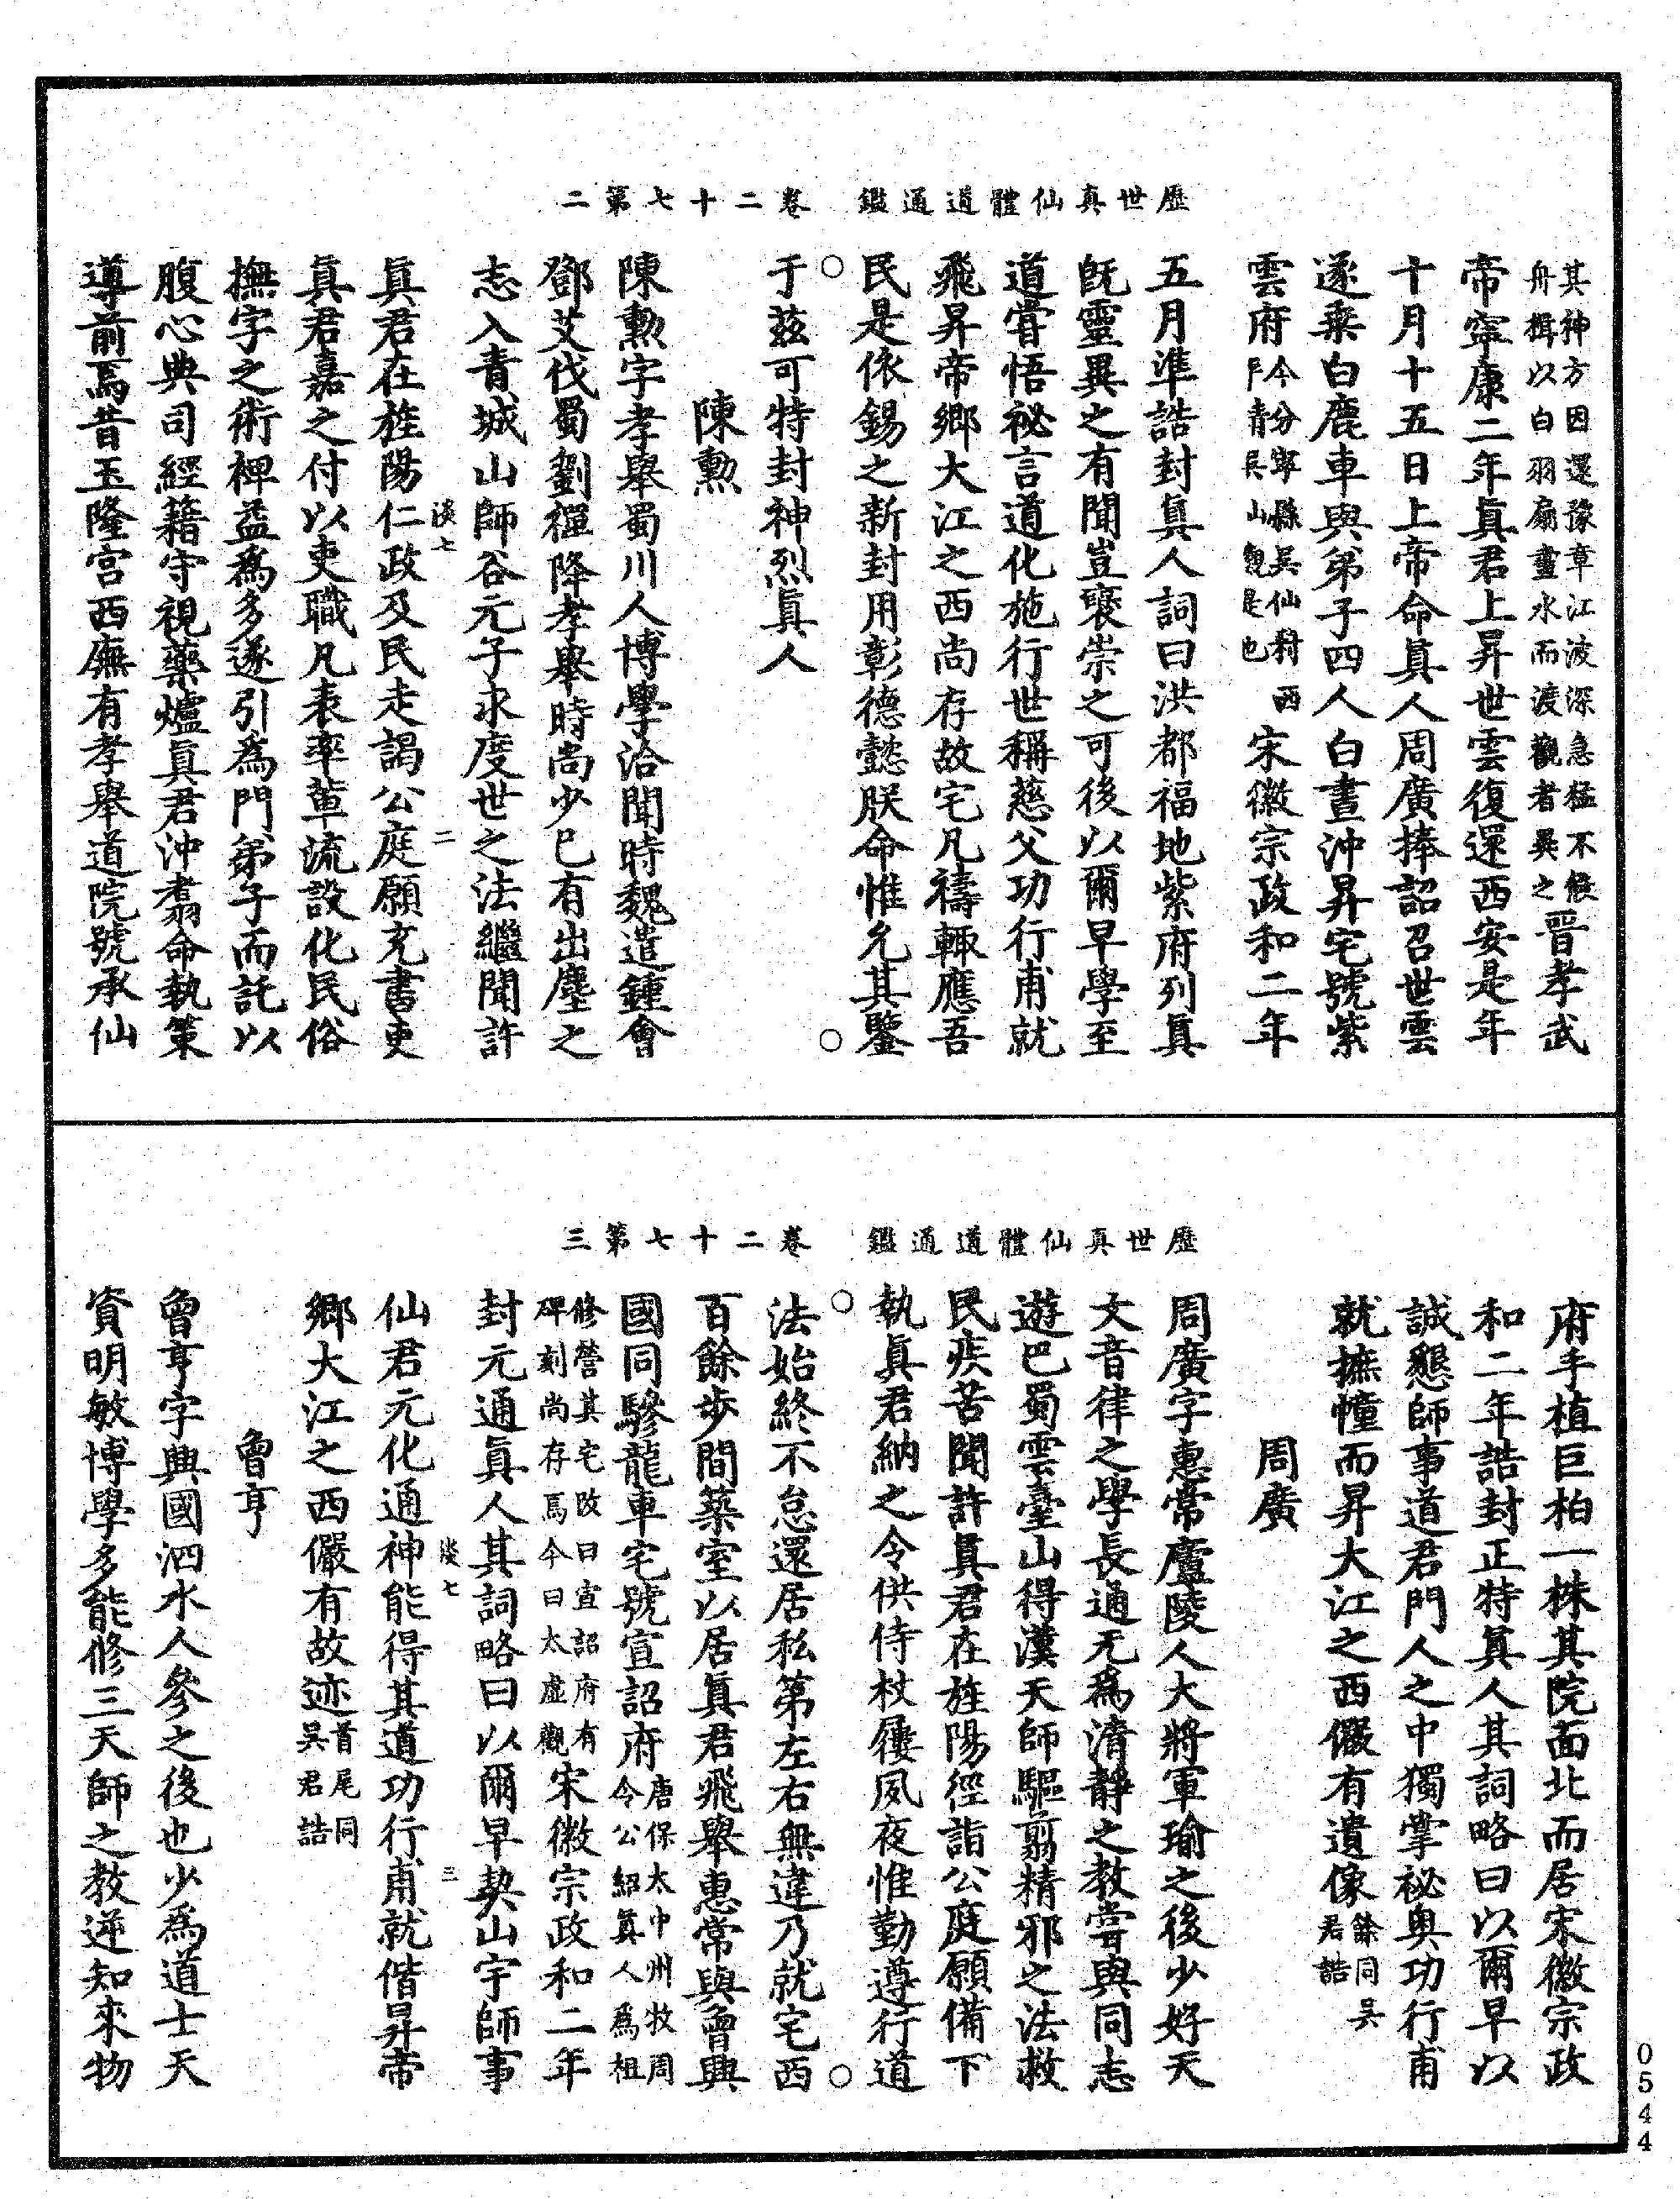 歷世真仙體道通鑑　卷二十七第二
其神方因還豫章江波深急猛不假
舟楫以白羽扇畫水而渡觀者異之晉孝武
帝寧康二年真君上昇世雲復還西安是年
十月十五日上帝命真人周廣捧詔召世雲
遂乘白鹿車與弟子四人白晝沖昇宅號紫
雲府今分寧縣吳仙村西
平青吳山觀是也宋徽宗政和二年
五月準誥封真人詞曰洪都福地紫府列真
既靈異之有聞豈褒崇之可後以爾早學至
道嘗悟祕言道化施行世稱慈父功行甫就
飛昇帝鄉大江之西尚存故宅凡禱輒應吾
民是依錫之新封用彰德懿朕命惟允其鑒
于茲可特封神烈真人
陳勲
陳勲字孝舉蜀川人博學洽聞時魏遣鍾會
鄧艾伐蜀劉禪降孝舉時尚少已有出塵之
志入青城山師谷元子求度世之法繼聞許
淡七　二
真君在旌陽仁政及民走謁公庭願充書吏
真君嘉之付以吏職凡表率輩流設化民俗
撫字之術裨益為多遂引為門弟子而託以
腹心典司經籍守視藥爐真君沖翥命執策
導前焉昔玉隆宮西廡有孝舉道院號承仙
歷世真仙體道通鑑　卷二十七第三
府手植巨柏一株其院面北而居宋徽宗政
和二年誥封正特真人其詞略曰以爾早以
誠懇師事道君門人之中獨掌祕奧功行甫
就撫幢而昇大江之西儼有遺像餘同吳
君誥
周廣
周廣字惠常廬陵人大將軍瑜之後少好天
文音律之學長通无為清靜之教嘗與同志
遊巴蜀雲臺山得漢天師驅翦精邪之法救
民疾苦聞許真君在旌陽徑詣公庭願備下
執真君納之令供侍杖屨夙夜惟勤遵行道
法始終不怠還居私第左右無違乃就宅西
百餘步間築室以居真君飛舉惠常與曾興
國同驂龍車宅號宣詔府唐保太中州牧周
令公紹真人為祖
修營其宅改曰宣詔府有
碑刻尚存焉今曰太虛觀宋徽宗政和二年
封元通真人其詞略曰以爾早契山宇師事
淡七　三
仙君元化通神能得其道功行甫就偕昇帝
鄉大江之西儼有故迹首尾同
吳君誥
曾亨
曾亨字興國泗水人參之後也少為道士天
資明敏博學多能修三天師之教逆知來物
0544